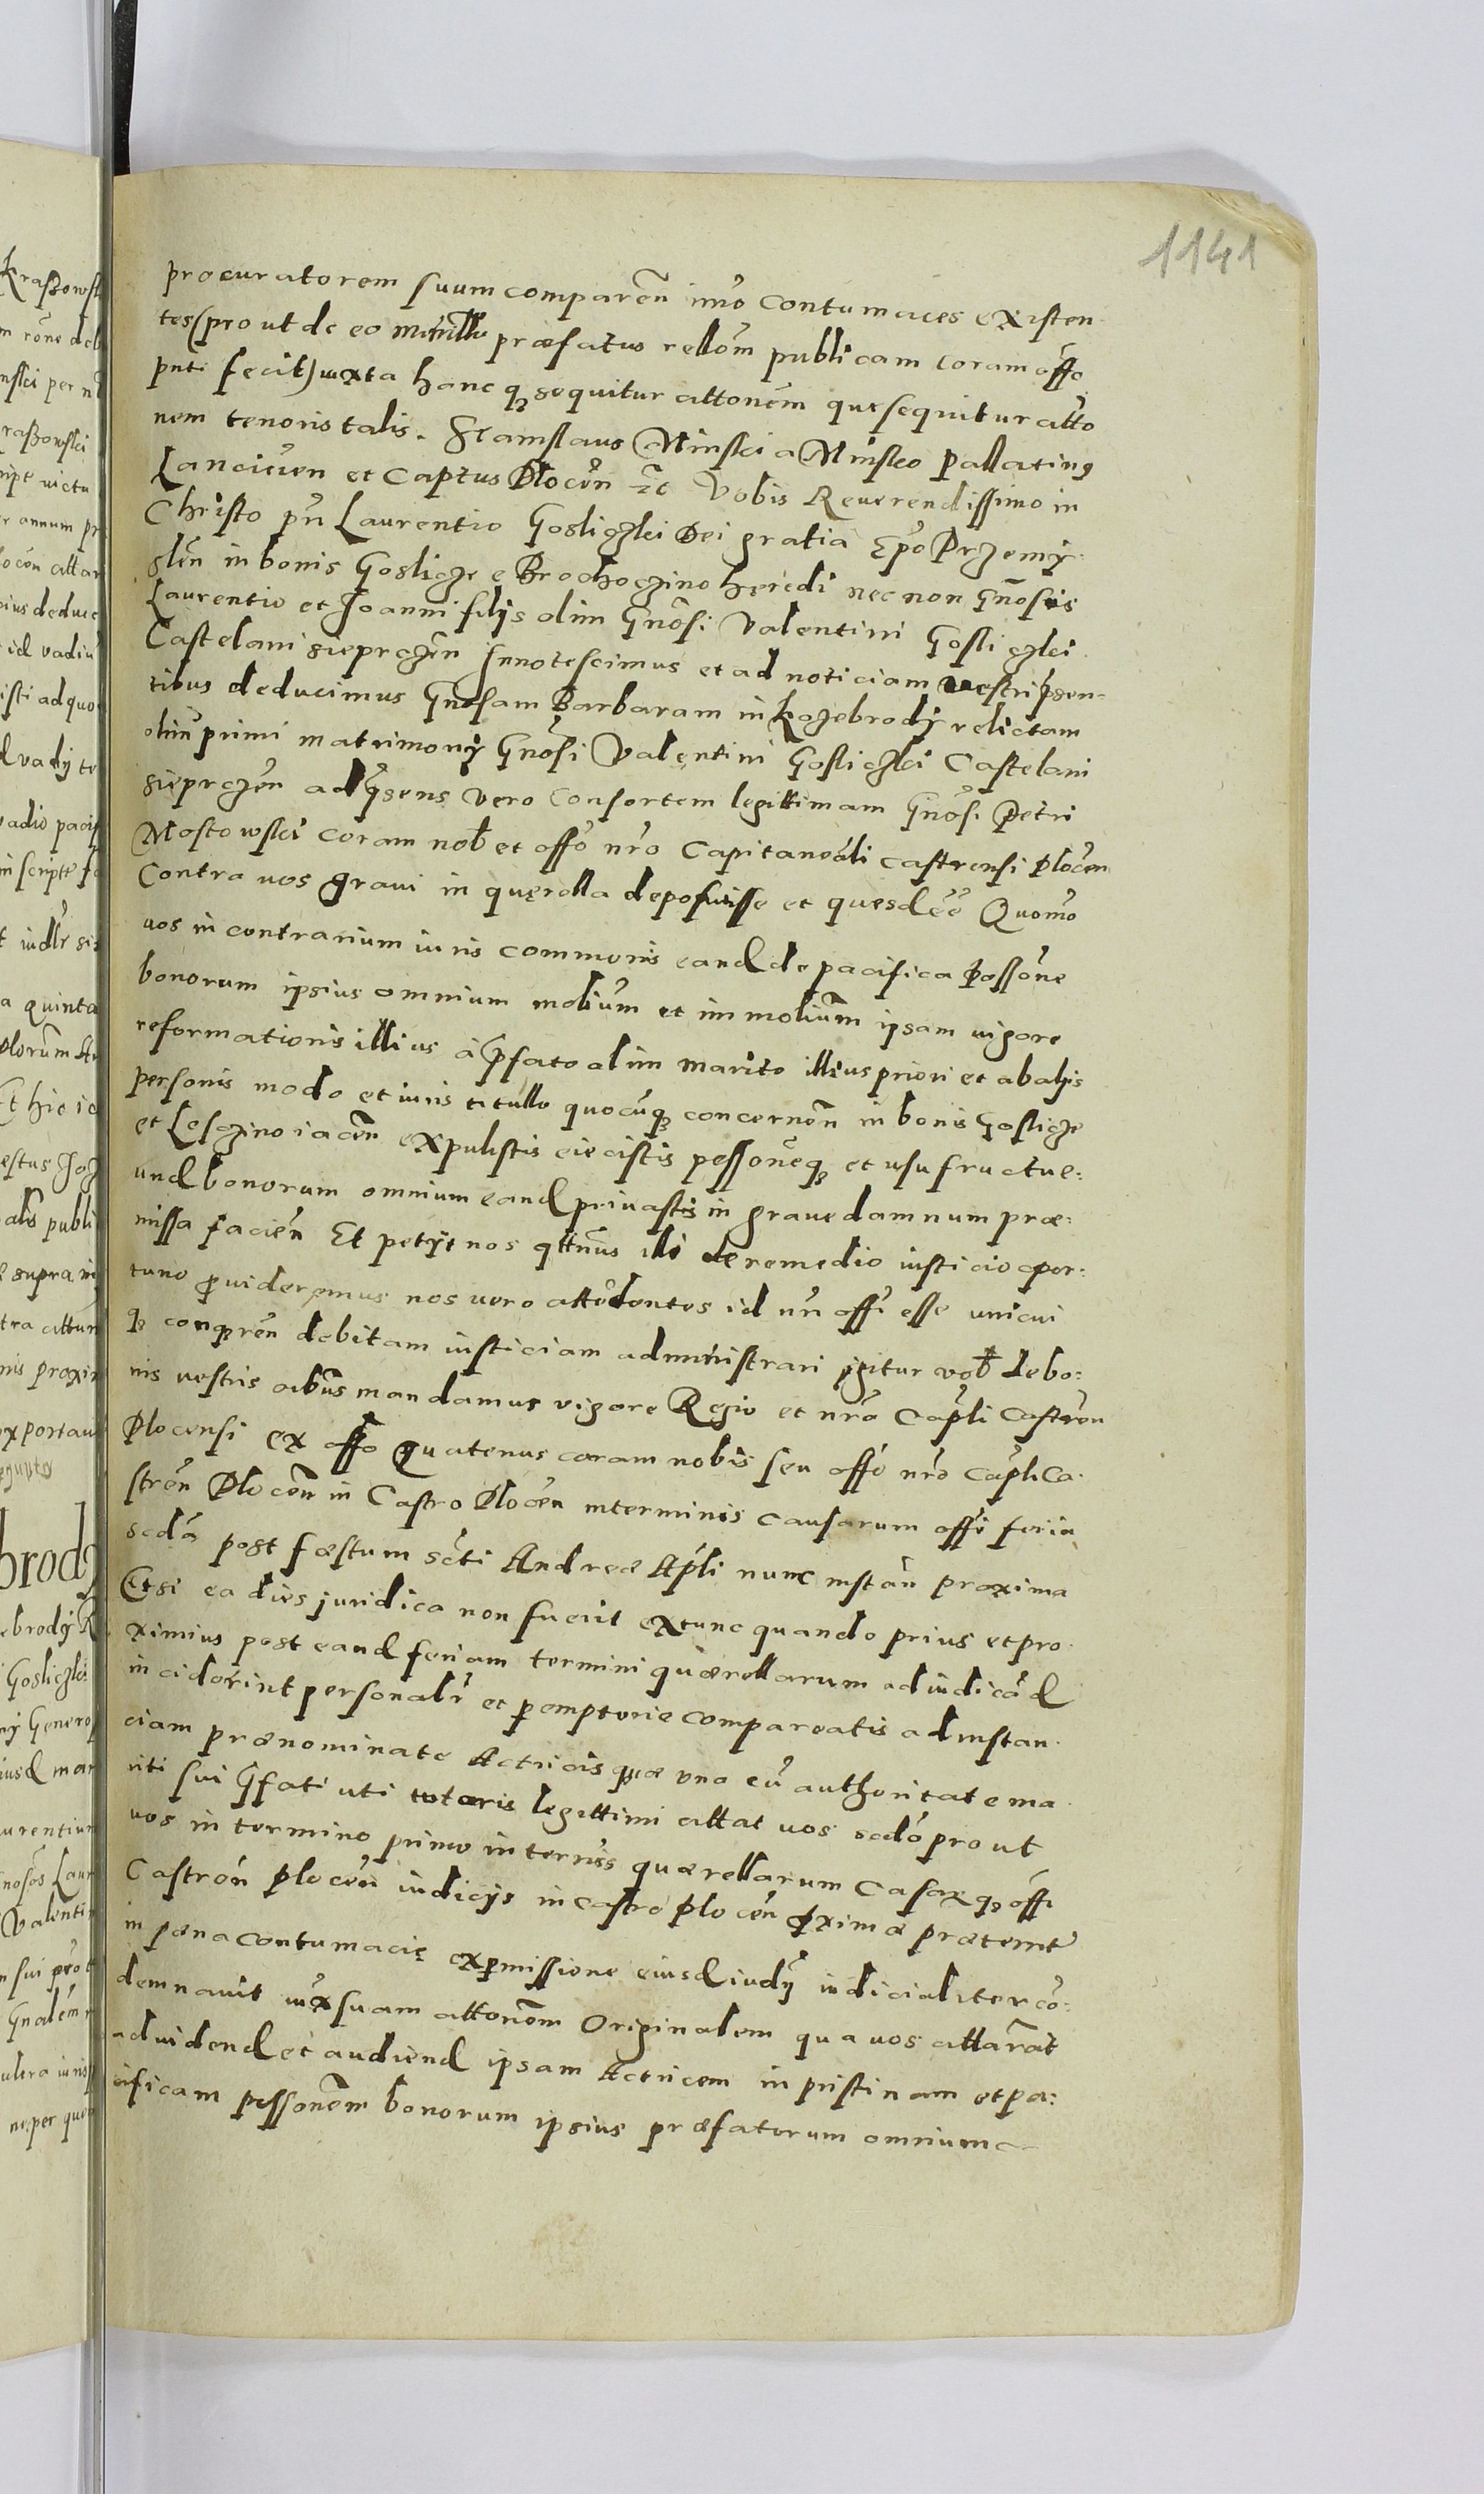 1141
procuratorem suum comparen̄ imo contumaces existen
tes (prout de eo mīnrllis præfatus rellōm publicam coram offo
pnti fecit) iuxta hanc q sequitur attonem que sequitur atto
nem tenoris talis. Stanislaus Minski a Minsko Pallatinus
Lancicien et Captus Plocen̄ etc Vobis Reuerendissimo in
Christo pri Laurentio Gosliczki Dei gratia Epo Przemy
slen̄ in bonis Goslicze e Brochoczino heredi nec non Gnosis
Laurentio et Joanni filys olim Gnosi Valentini Gosliczki
Castelani sieprczen̄ Innotescimus et ad noticiam vestri psen
tibus deducimus Gnosam Barbaram in Kozebrody relictam
olim primi matrimony Gnosi Valentini Gosliczki Castelani
sieprczen̄ ad psens vero consortem legittimam Gnosi Petri
Mostowski coram nob et offo nro Capitaneali castrensi Plocen
Contra uos graui in querella deposuisse etques dēē Quomo
uos in contrarium iuris commonis eand de pacifica possone
bonorum ipsius omnium mobium et immobium ipsam uigore
reformationis illius a pfato olim marito illius priori et ab alys
personis modo et iuris titullo quocunq concernen̄ in bonis Goslicze
et Lesczino iacen̄ expulistis eiecistis possoneq et usu fructue:
und bonorum omnium eand priuastis in graue damnum præ:
missa facien̄ Et petyt nos qttnus illi de remedio iusticio opor:
tuno prouideremus nos uero attendentes id nri offi esse unicui
q conqren̄ debitam iusticiam administrari igitur vob de bo:
nis vestris oibus mandamus vigore Regio et nro Capli castren
Plocensi ex offo Quatenus coram nobis seu offo nro Capli Ca
stren̄ Plocen̄ in Castro Plocen in terminis causarum offi feria
scda post fæstum scti Andreæ Apli nunc instan̄ proxima
Et si ea dies juridica non fuerit extunc quando prius et pro
ximius post eand feriam termini quærellarum ad iudicand
inciderint personalr et pemptorie compareatis ad instan
ciam prænominate Actricis quæ una cu authoritate ma
riti sui pfati uti tutoris legittimi attat uos scdo prout
uos in termino primo in ternis quærellarum Casarq offi
Castren̄ Plocen̄ iudicys in castro Plocen̄ pxime præterit
in pæna contumacie ex pmissione eiusd iudy iudicialiter co:
demnauit iux suam attonem Originalem qua uos attarat
ad uidend et audiend ipsam Actricem in pristinam et pa:
cificam possonem bonorum ipsius præfatorum omnium